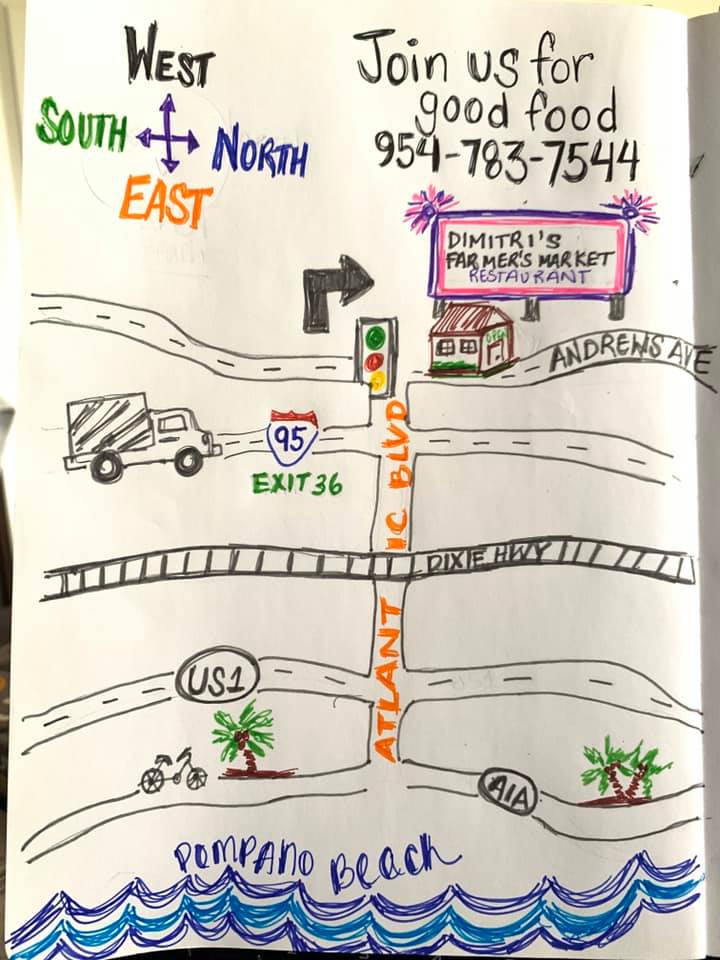 WEST
SOUTH
NORTH
EAST
Join us for
good food
954-783-7544
DIMITRI'S
FARMER'S MARKET
RESTAURANT
OPEN
ANDREWS AVE
95
EXIT 36
ATLANTIC BLVD
DIXIE HWY
US1
A1A
POMPANO BEACH